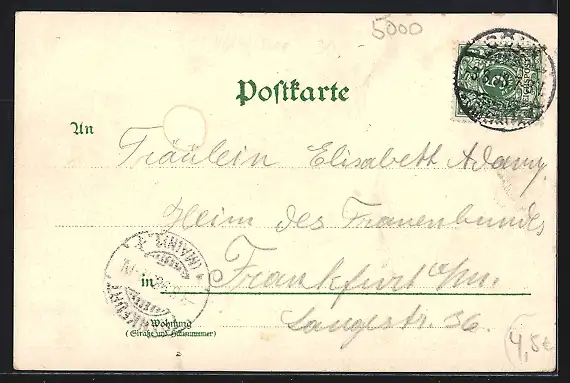 5000
Postkarte
An
Fräulein Elisabeth Adamy
Heim des Frauenbundes
in Frankfurt a/m.
Wohnung
(Straße und Hausnummer)
Langestr. 36.
4,50